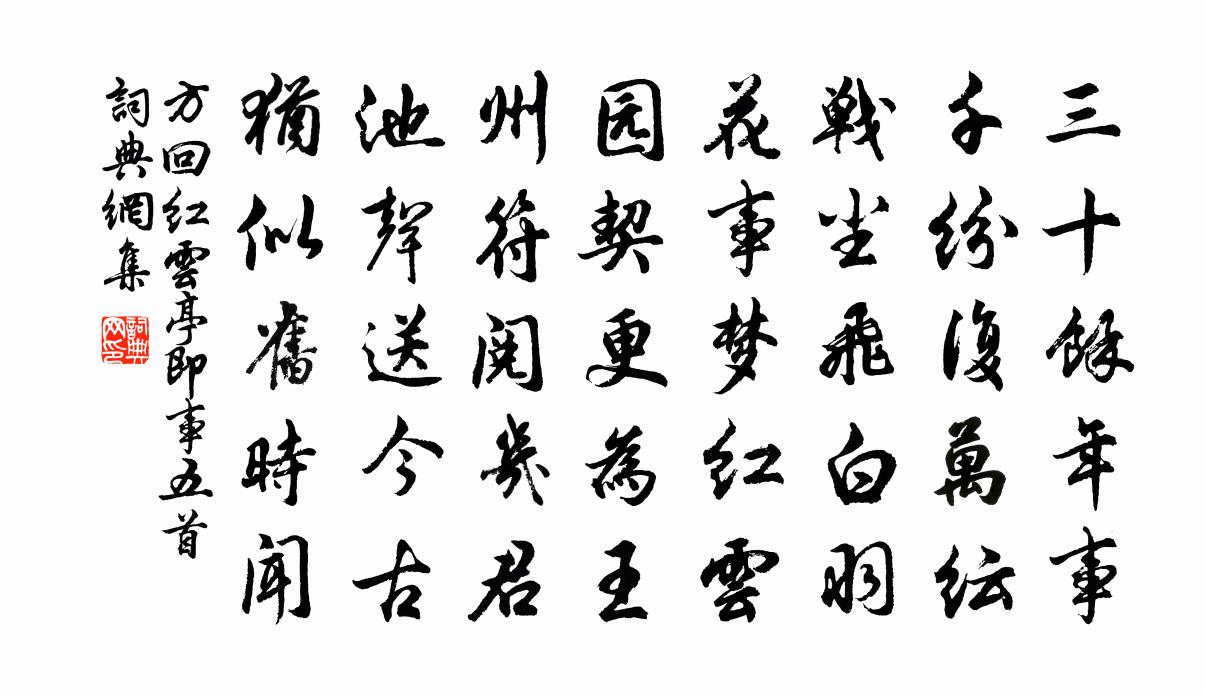 三十餘年事
千紛復萬纭
戰尘飛白羽
花事梦红雲
园契更為王
州符閱幾君
池聲送今古
猶似舊時闻
方回红雲亭即事五首
詞典網集
詞典网印